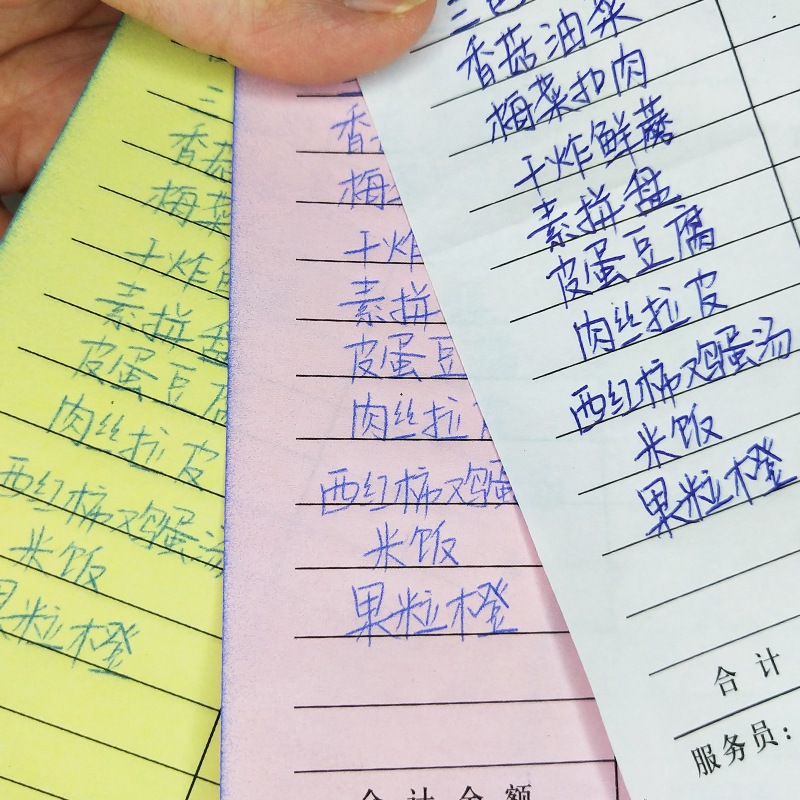 香菇油菜
梅菜扣肉
干炸鲜蘑
素拼盘
皮蛋豆腐
肉丝拉皮
西红柿鸡蛋汤
米饭
果粒橙
合计
服务员:
三
香
梅
干炸
素拼
皮蛋豆
肉丝拉
西红柿鸡蛋
米饭
果粒橙
合计金额
三
香菇
梅菜
干炸鱼
素拼盘
皮蛋豆腐
肉丝拉皮
西红柿鸡蛋汤
米饭
果粒橙